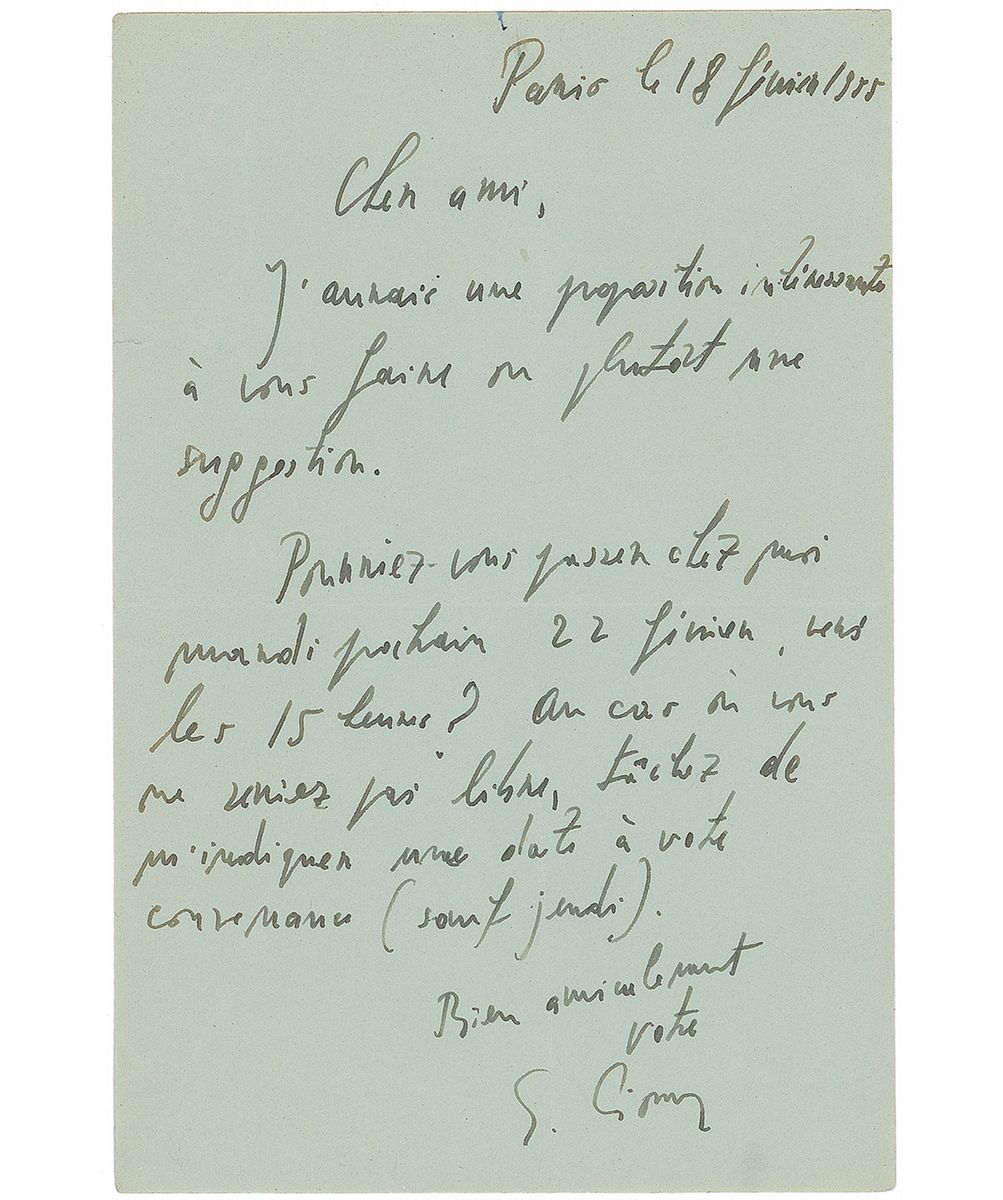 Paris le 18 février 1955
Cher ami,
J'aurais une proposition intéressante
à vous faire ou plutôt une
suggestion.
Pourriez-vous passer chez moi
mardi prochain 22 février, vers
les 15 heures? Au cas où vous
ne seriez pas libre, tâchez de
m'indiquer une date à votre
convenance (sauf jeudi).
Bien amicalement
votre
E. Cioran